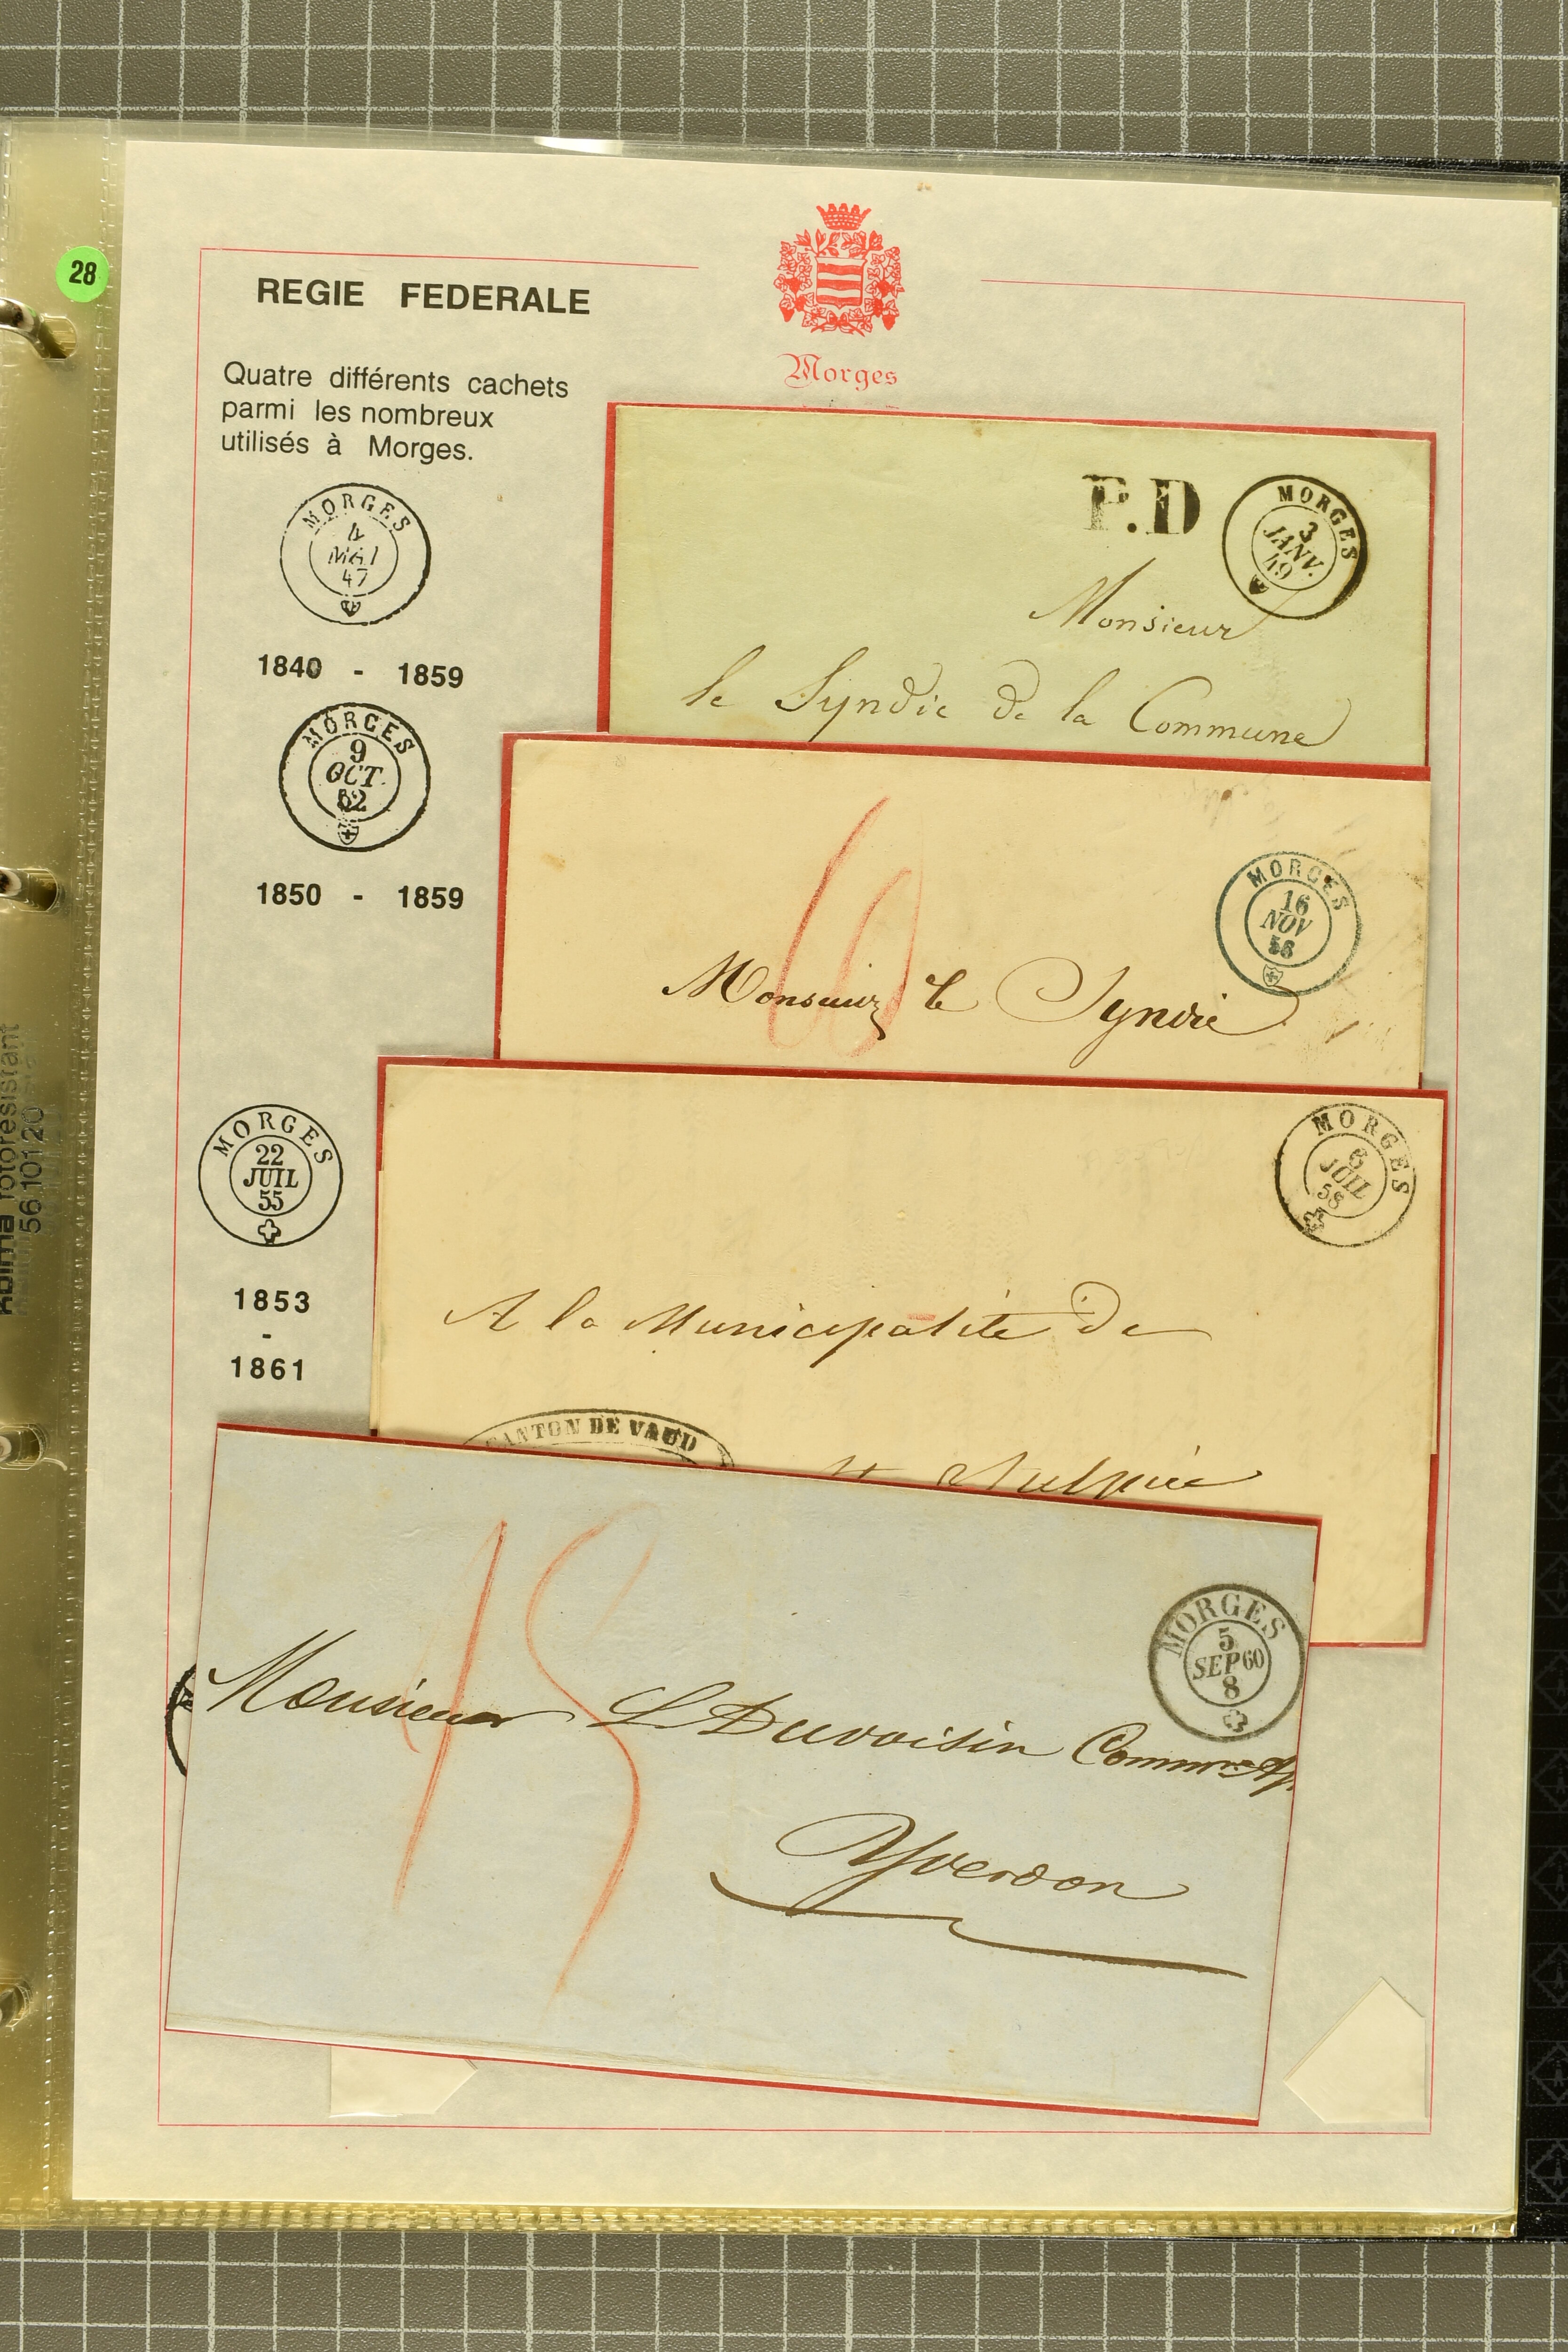 28
REGIE FEDERALE
Morges
Quatre différents cachets
parmi les nombreux
utilisés à Morges.
MORGES
4
MAI
47
1840 - 1859
MORGES
9
OCT.
52
1850 - 1859
MORGES
22
JUIL
55
1853
-
1861
P.D
MORGES
3
JANV.
49
Monsieur
le Syndic de la Commune
MORGES
16
NOV
58
Monsieur le Syndic
MORGES
6
JUIL
58
A la Municipalité de
CANTON DE VAUD
St Sulpice
15
MORGES
5
SEP 60
8
Monsieur L Duvoisin
Yverdon
fotoresistant
5610120